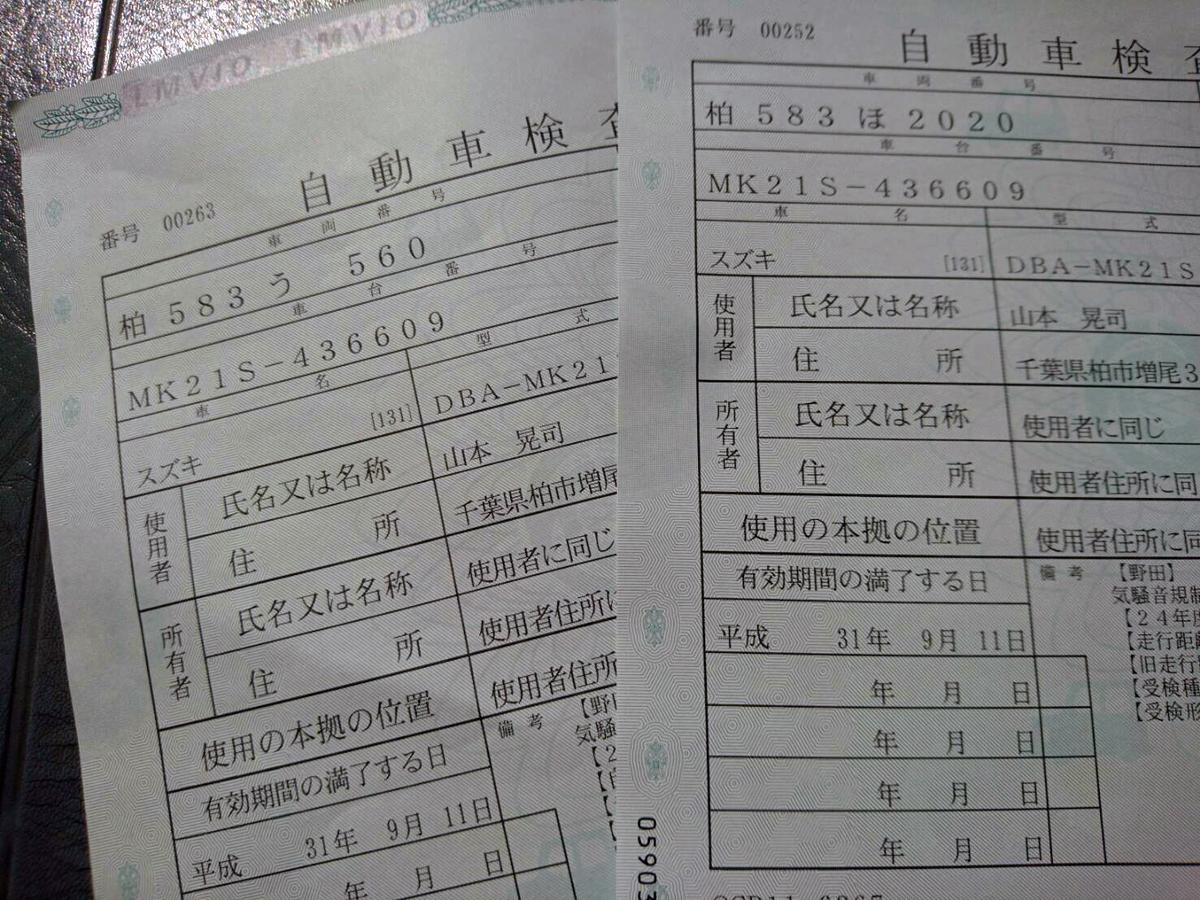 LMVIO LMVIO
番号 00263
自動車検
車両番号
柏 583 う 560
車台番号
MK21S-436609
車名
型式
スズキ [131] DBA-MK21
使用者
氏名又は名称 山本 晃司
住所 千葉県柏市増尾
所有者
氏名又は名称 使用者に同じ
住所 使用者住所に
使用の本拠の位置 使用者住所
有効期間の満了する日
備考
【野
気騒
【2
平成 31年 9月 11日
年 月 日
番号 00252
自動車検
車両番号
柏 583 ほ 2020
車台番号
MK21S-436609
車名
型式
スズキ [131] DBA-MK21S
使用者
氏名又は名称 山本 晃司
住所 千葉県柏市増尾3
所有者
氏名又は名称 使用者に同じ
住所 使用者住所に同
使用の本拠の位置 使用者住所に同
有効期間の満了する日
備考
【野田】
気騒音規制
【24年度
【走行距離
【旧走行
【受検種
【受検形
平成 31年 9月 11日
年 月 日
年 月 日
年 月 日
年 月 日
05903